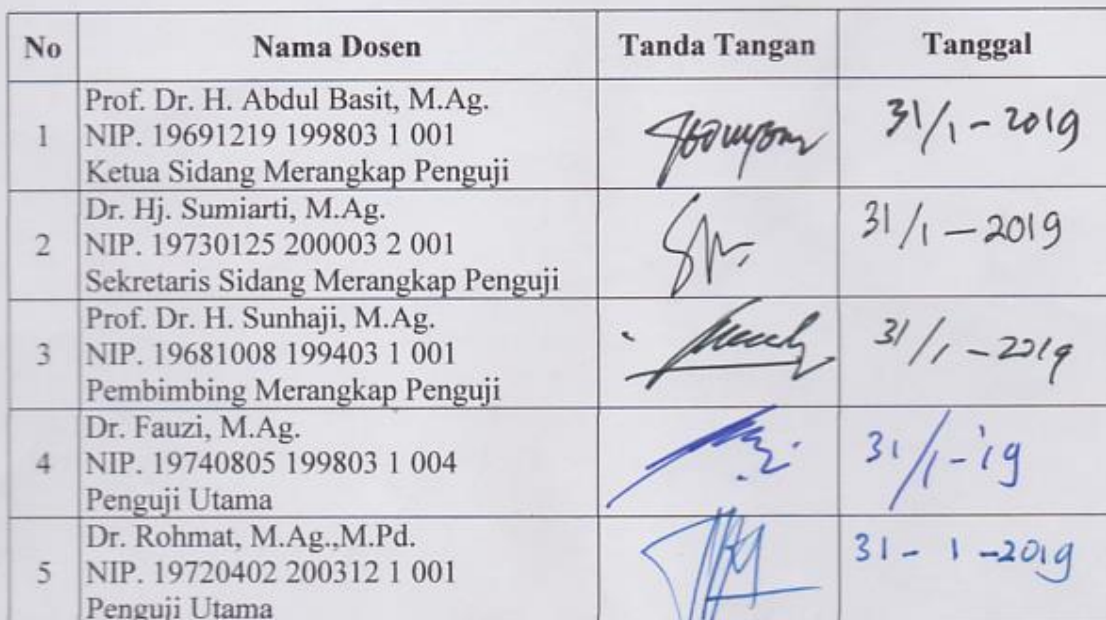 No Nama Dosen Tanda Tangan Tanggal
1 Prof. Dr. H. Abdul Basit, M.Ag.
NIP. 19691219 199803 1 001
Ketua Sidang Merangkap Penguji
31/1 - 2019
2 Dr. Hj. Sumiarti, M.Ag.
NIP. 19730125 200003 2 001
Sekretaris Sidang Merangkap Penguji
31/1 - 2019
3 Prof. Dr. H. Sunhaji, M.Ag.
NIP. 19681008 199403 1 001
Pembimbing Merangkap Penguji
31/1 - 2019
4 Dr. Fauzi, M.Ag.
NIP. 19740805 199803 1 004
Penguji Utama
31/1 - 19
5 Dr. Rohmat, M.Ag.,M.Pd.
NIP. 19720402 200312 1 001
Penguji Utama
31 - 1 - 2019